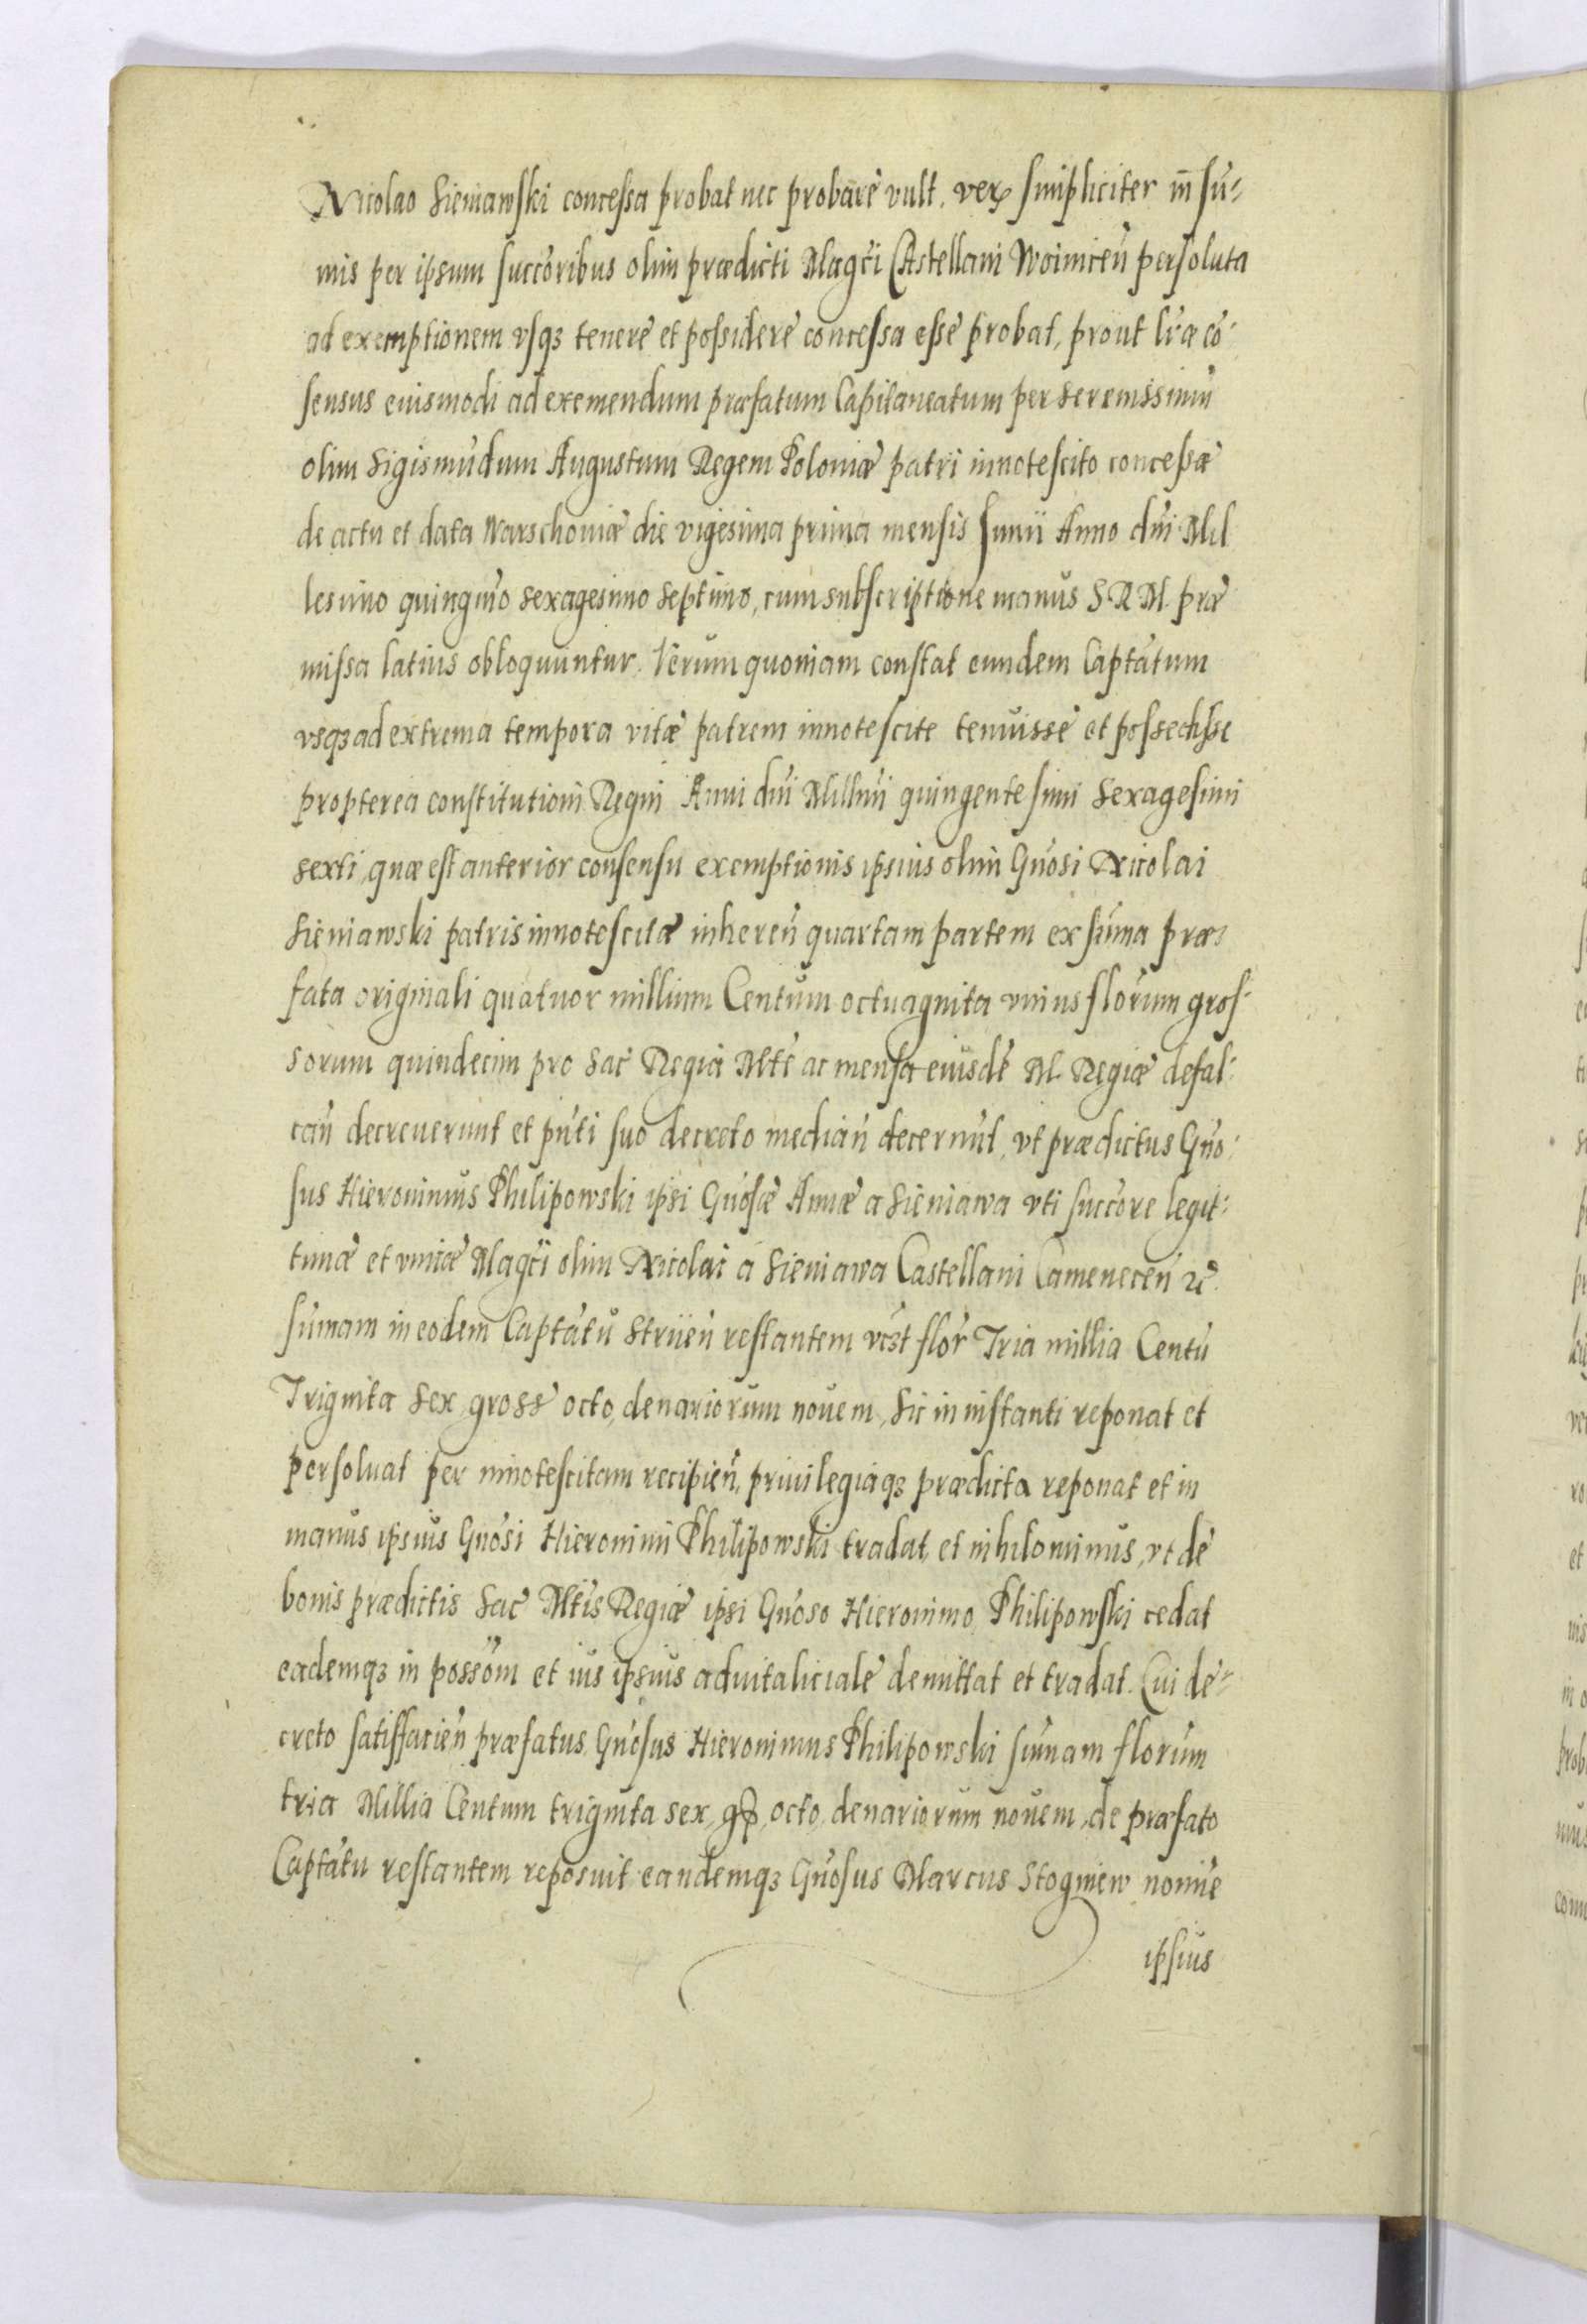 Nicolao Sieniawski concessa probat nec probare vult, verū simpliciter in su-
mis per ipsum succoribus olim prædicti Magci Castellani Woiniceñ persoluta
ad exemptionem vsqȝ tenere et possidere concessa esse probat, prout lræ cō-
sensus eiusmodi ad exemendum præfatum Capitaneatum per serenissimū
olim Sigismūdum Augustum Regem Poloniæ patri innotescito concessæ
de actu et data Warschoviæ die vigesima prima mensis Junii Anno dñi Mil
lesimo quingmo sexagesimo septimo, cum subscriptione manus S R M. præ
missa latius obloquuntur. Verum quoniam constat eundem Captatum
vsqȝ ad extrema tempora vitæ patrem innotescite tenuisse et possedisse
propterea constitutioni Regni Anni dñi Millmi quingentesimi sexagesimi
sexti, quæ est anterior consensu exemptionis ipsius olim Gnosi Nicolai
Sieniawski patris innotescitæ inhereñ quartam partem ex suma præ-
fata originali quatuor millium Centum octuaginta vnius florum gros-
sorum quindecim pro Sac Regia Mte ac mensa eiusdē M. Regiæ defal-
cañ decreuerunt et pñti suo decreto mediañ decernūt, vt prædictus Gno-
sus Hieronimus Philipowski ipsi Gnosæ Annæ a Sieniawa vti succore legit-
timæ et vnicæ Magci olim Nicolai a Sieniawa Castellani Cameneceñ ꝛc̃.
sumam in eodem Captatu Striieñ restantem vcst flor Tria millia Centū
Triginta Sex gross octo, denariorum nouem, sic in instanti reponat et
persoluat per innotescitam recipieñ, priuilegiaqȝ prædicta reponat et in
manus ipsius Gnosi Hieronimi Philipowski tradat, et nihilominus, vt de
bonis prædictis Sac Mtis Regiæ ipsi Gnoso Hieronimo Philipowski cedat
eademqȝ in possōm et ius ipsius aduitaliciale demittat et tradat. Cui de-
creto satisfacieñ præfatus Gnosus Hieronimus Philipowski sumam florum
tria Millia Centum triginta sex, gß, octo, denariorum nouem, de præfato
Captatu restantem reposuit eandemqȝ Gnosus Marcus Stogniew nomie
ipsius